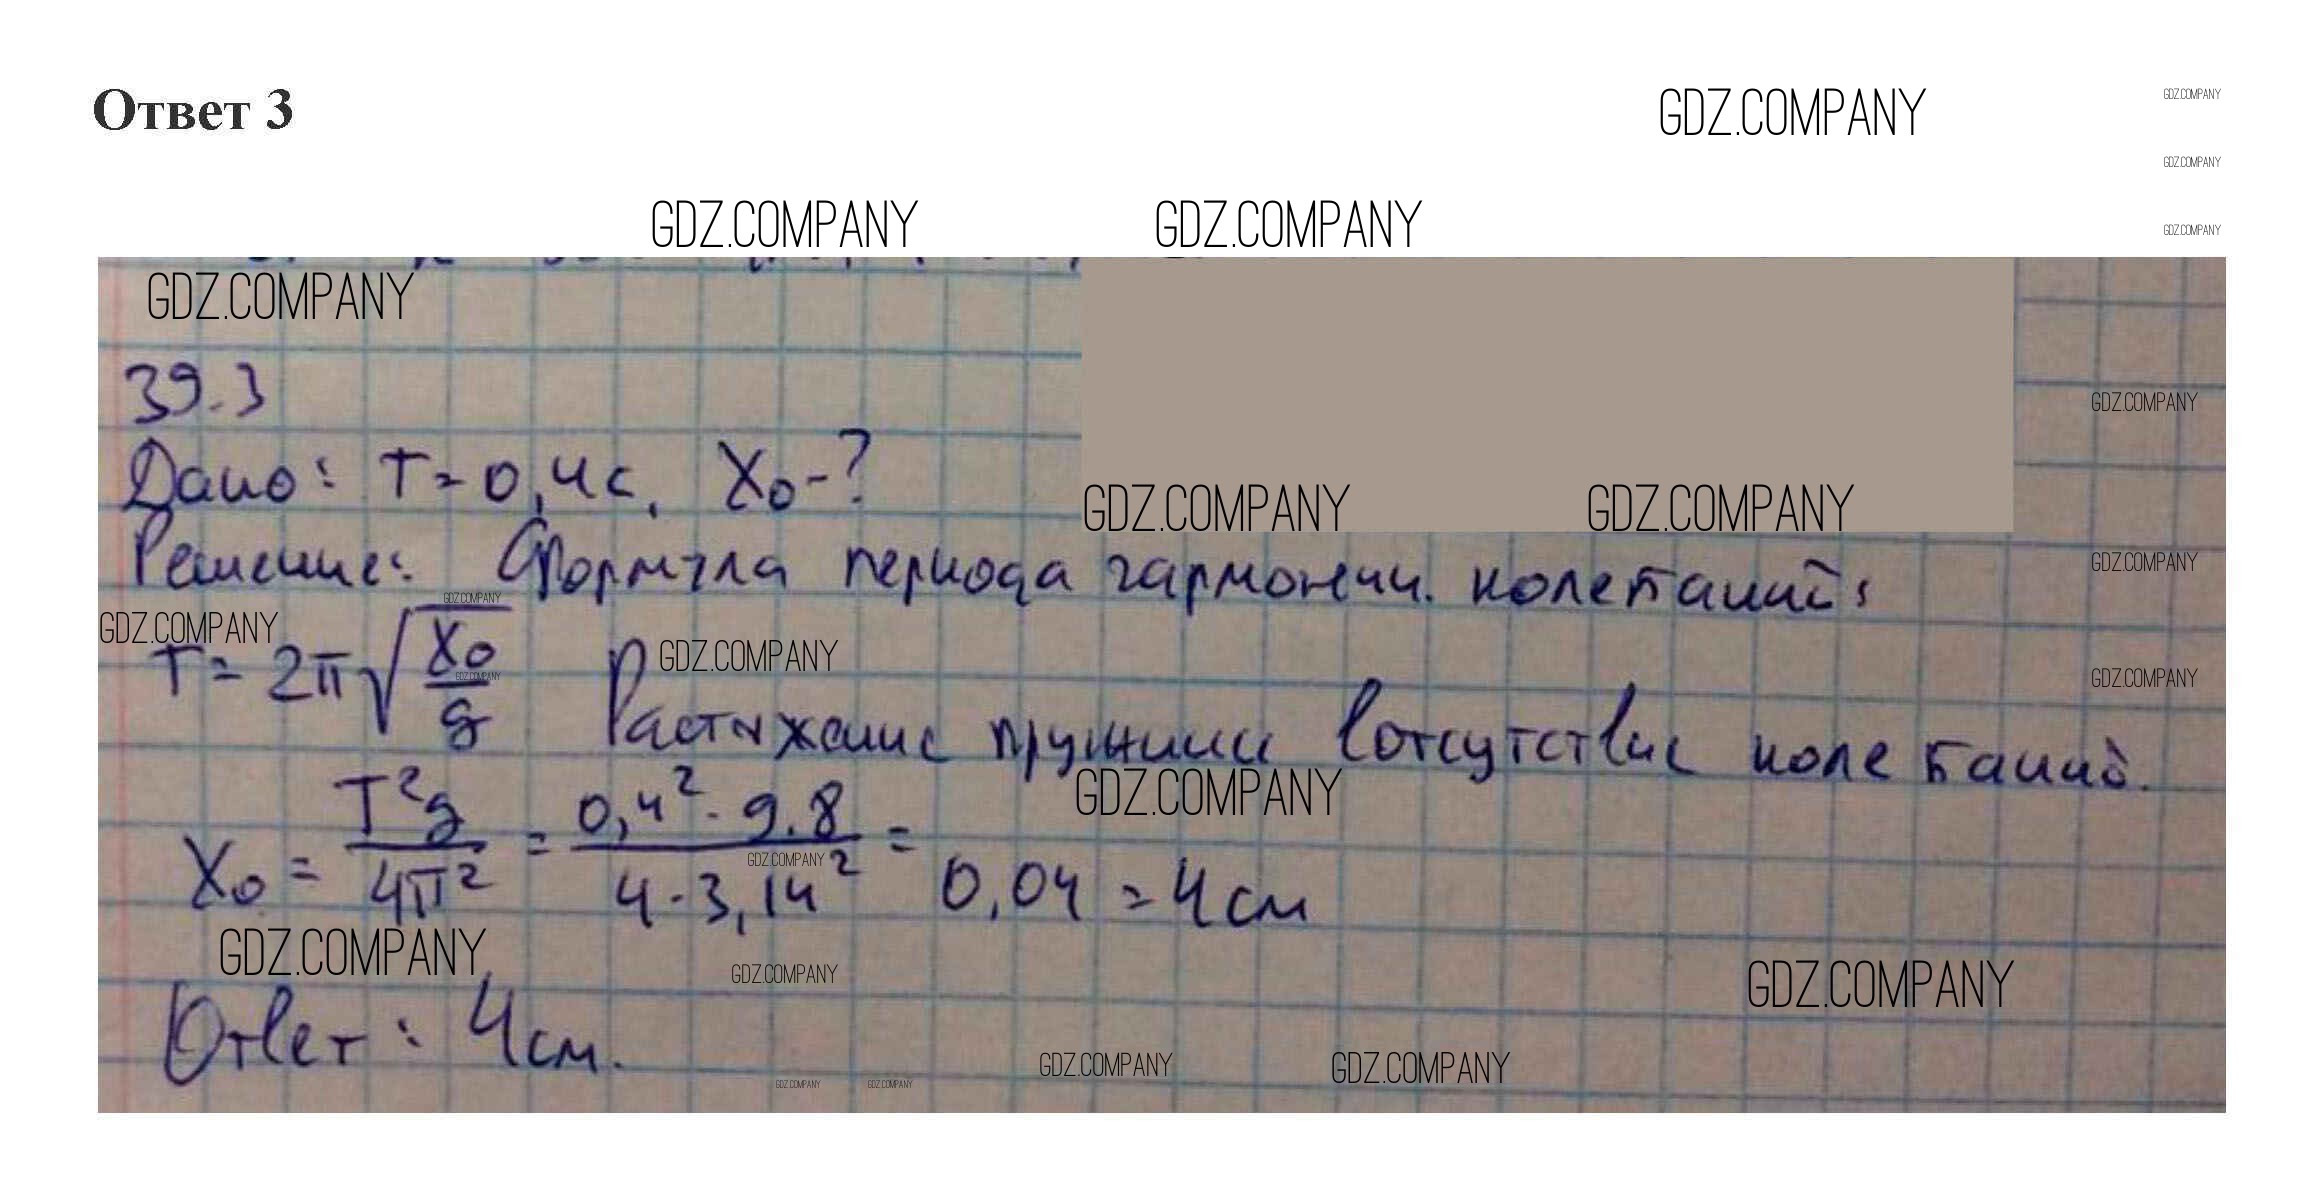 Ответ 3
GDZ.COMPANY
GDZ.COMPANY
GDZ.COMPANY
GDZ.COMPANY GDZ.COMPANY
GDZ.COMPANY
GDZ.COMPANY
39.3
GDZ.COMPANY
Дано: T = 0,4с. X₀ - ?
GDZ.COMPANY GDZ.COMPANY
Решение: Формула периода гармонич. колебаний:
GDZ.COMPANY
GDZ.COMPANY
GDZ.COMPANY GDZ.COMPANY
T = 2π√(X₀/g) Растяжение пружины в отсутствие колебаний.
GDZ.COMPANY
GDZ.COMPANY
GDZ.COMPANY
X₀ = T²g/4π² = 0,4² · 9.8/4 · 3,14² = 0,04 = 4см
GDZ.COMPANY
GDZ.COMPANY
GDZ.COMPANY GDZ.COMPANY GDZ.COMPANY
Ответ: 4см.
GDZ.COMPANY GDZ.COMPANY GDZ.COMPANY GDZ.COMPANY